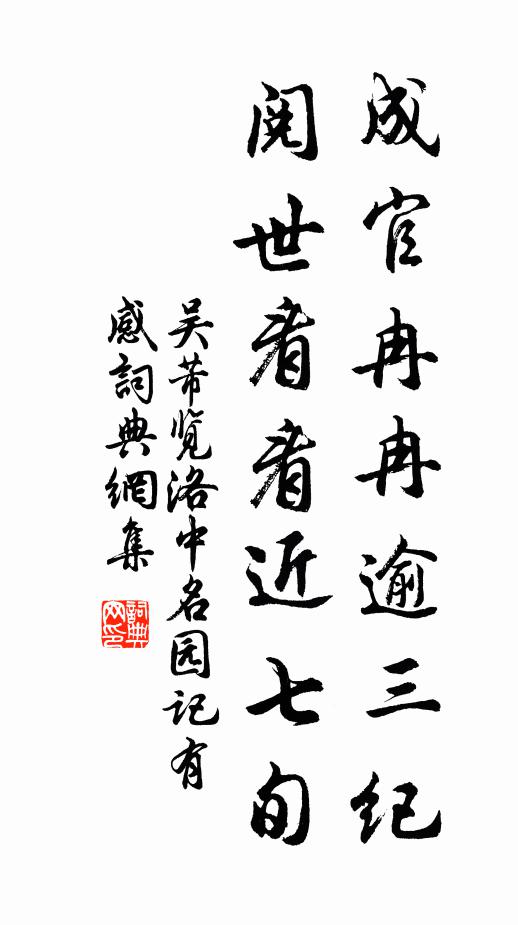 成官冉冉逾三纪
阅世看看近七旬
吴芾览洛中名园记有
感詞典網集
詞典
网印